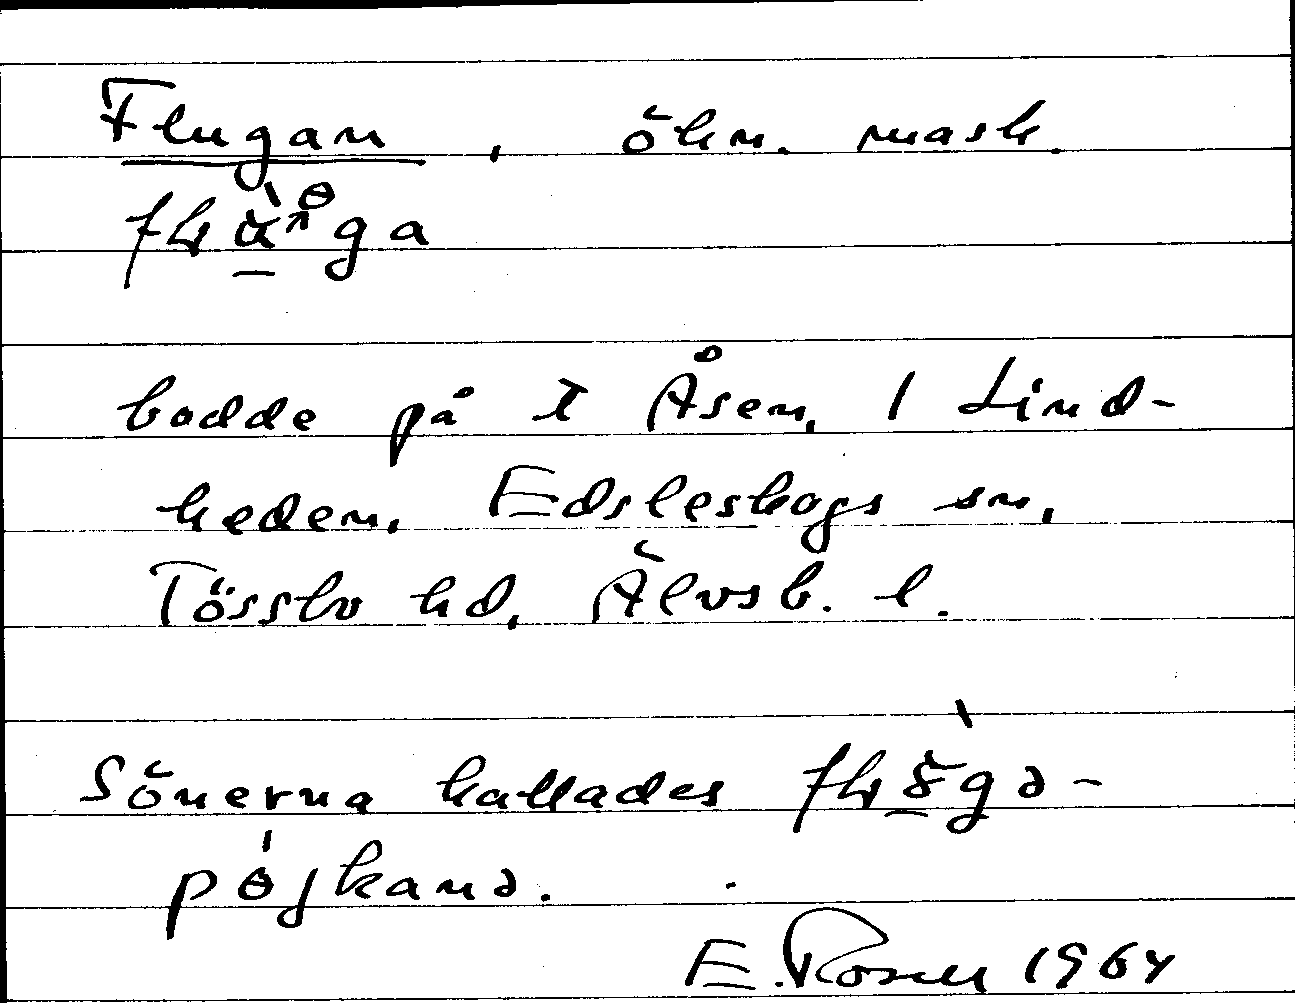 Flugan, ökn. mask.
bodde på t Åsen, / Lind-
heden, Edsleskogs sn,
Tössbo hd, Älvsb. l.
Sönerna kallades
pөjkanə.
E. Rosell 1964